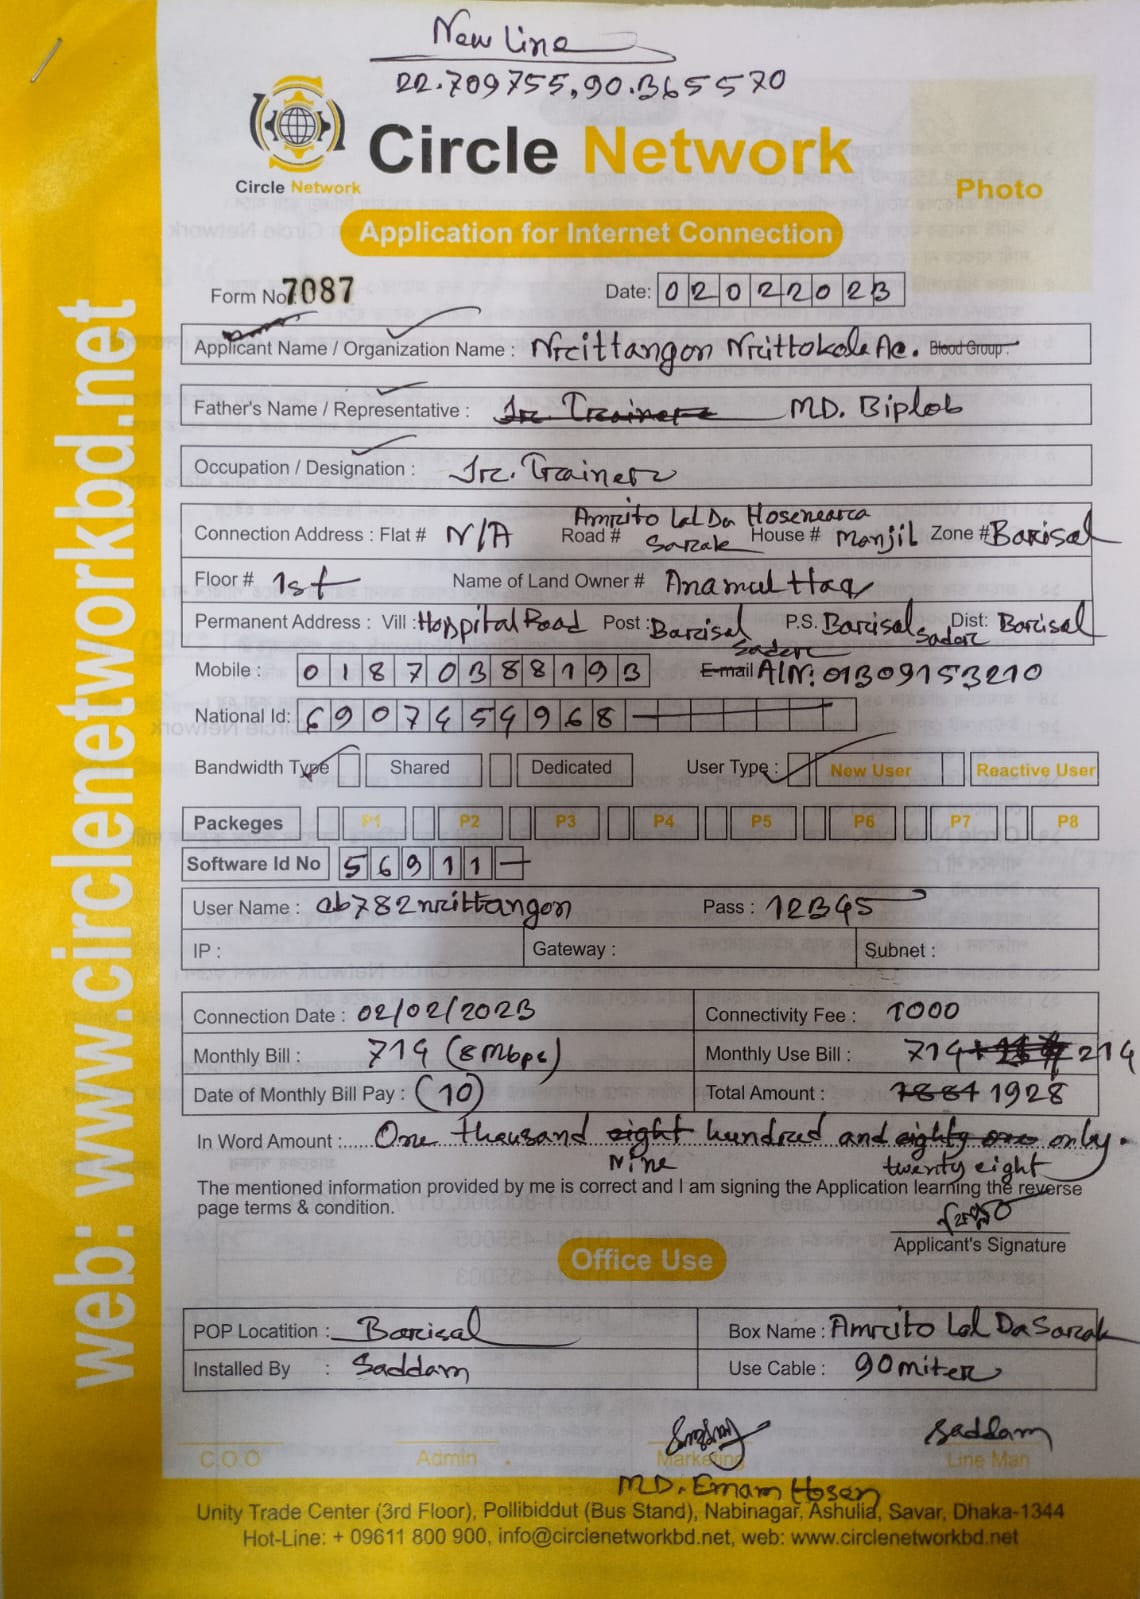 New Line
22.709755,90.365570
Circle Network
Circle Network
Photo
Application for Internet Connection
Form No: 7087
Date: 02022023
Applicant Name / Organization Name : Nrittangon Nrittokola Ac. Blood Group :
Father's Name / Representative : Sr. Trainer MD. Biplob
Occupation / Designation : Sr. Trainer
Connection Address : Flat # N/A Road # Amrito Lal Da Sarak House # Hoseneara Manjil Zone # Barisal
Floor # 1st Name of Land Owner # Anamul Haq
Permanent Address : Vill : Hospital Road Post : Barisal Sadar P.S. Barisal Sadar Dist: Barisal
Mobile : 01870388193 E-mail AlN: 01309153210
National Id: 6907454968
Bandwidth Type Shared Dedicated User Type : New User Reactive User
Packeges P1 P2 P3 P4 P5 P6 P7 P8
Software Id No 56911
User Name : ab782nrittangon Pass : 12345
IP : Gateway : Subnet :
Connection Date : 02/02/2023 Connectivity Fee : 1000
Monthly Bill : 714 (8Mbps) Monthly Use Bill : 714+ 214
Date of Monthly Bill Pay : (10) Total Amount : 1881 1928
In Word Amount : One thousand eight hundred and eighty one only.
Nine twenty eight
The mentioned information provided by me is correct and I am signing the Application learning the reverse
page terms & condition.
Applicant's Signature
Office Use
POP Locatition : Barisal Box Name : Amrito Lal Da Sarak
Installed By : Saddam Use Cable : 90 miter
Saddam
C.O.O Admin Marketing Line Man
MD. Emam Hosen
Unity Trade Center (3rd Floor), Pollibiddut (Bus Stand), Nabinagar, Ashulia, Savar, Dhaka-1344
Hot-Line: + 09611 800 900, info@circlenetworkbd.net, web: www.circlenetworkbd.net
web: www.circlenetworkbd.net